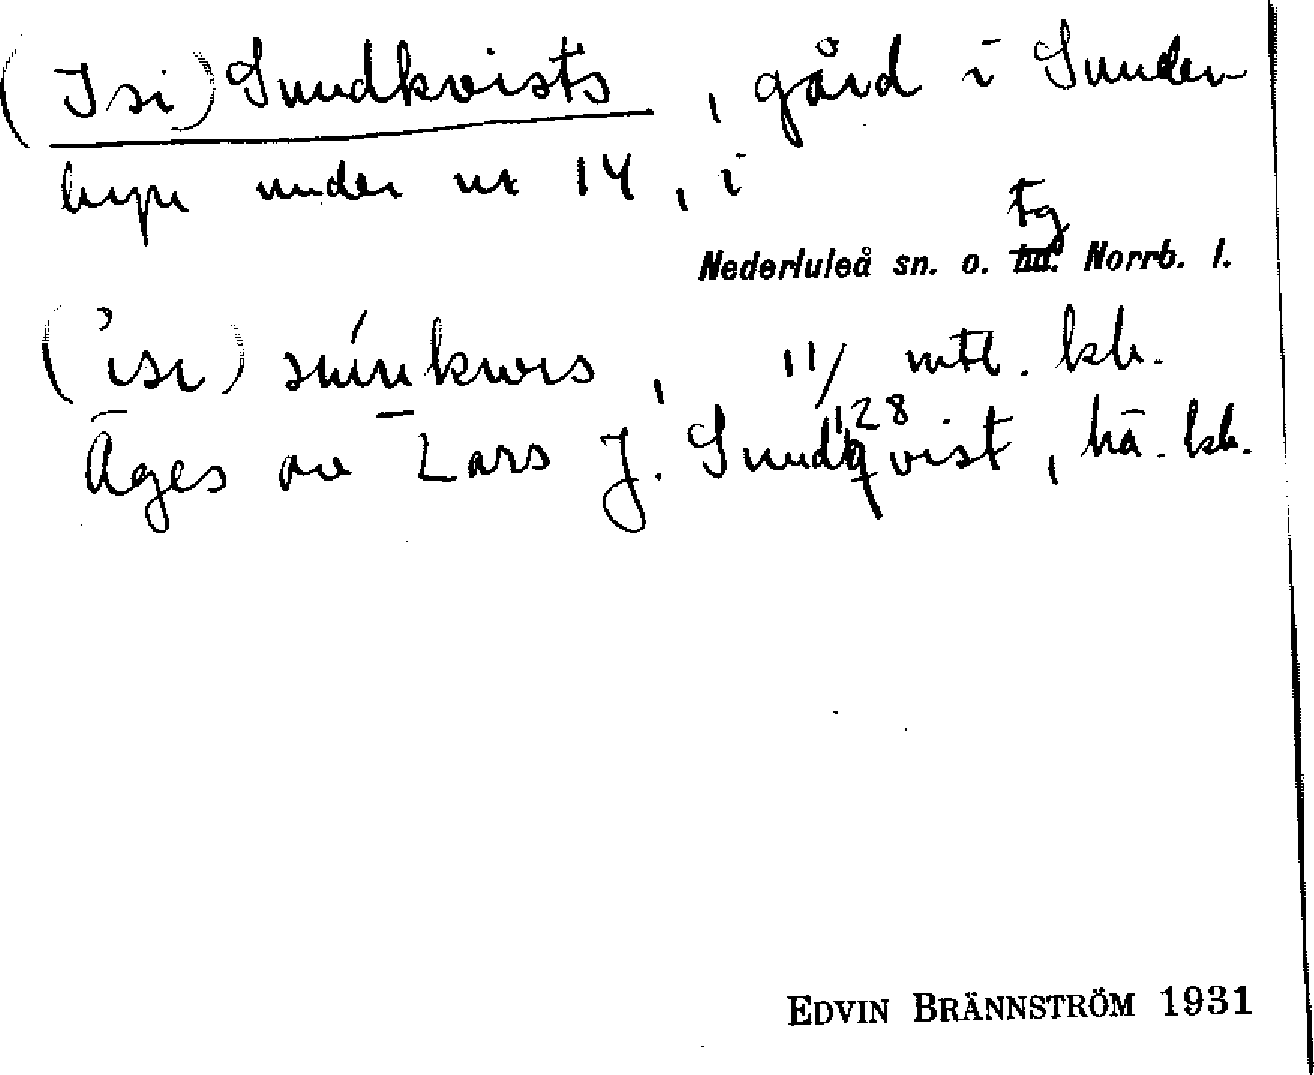 (Isi) Sundkvists, gård i Sunder
byn under nr 14, i
tg
Nederluleå sn. o. hd. Norrb. l.
11/128 mtl. kb.
Äges av Lars J. Sundqvist, hä. kb.
EDVIN BRÄNNSTRÖM 1931